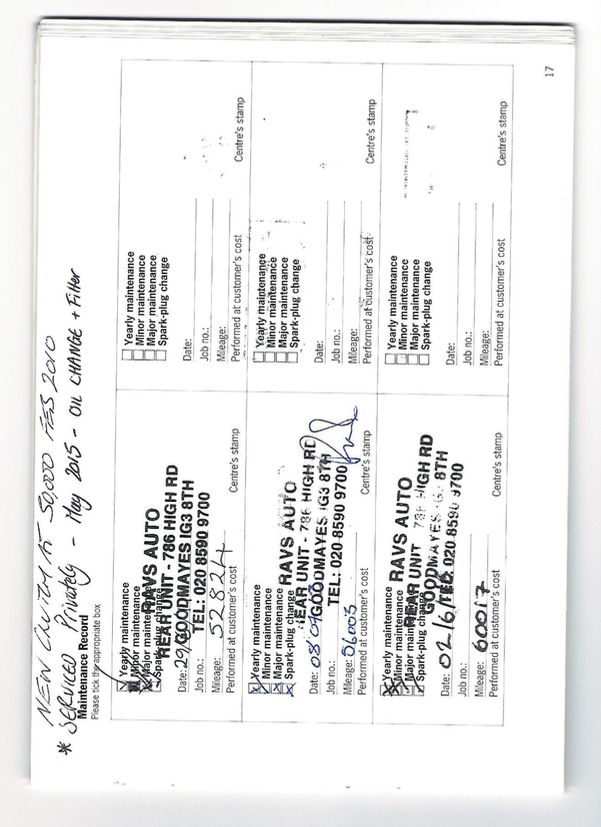 NEW CLUTCH AT 50,000 FEB 2010
* SERVICED Privately - May 2015 - OIL CHANGE + Filter
Maintenance Record
Please tick the appropriate box
Yearly maintenance
Minor maintenance
Major maintenance
Spark-plug change
RAVS AUTO
REAR UNIT - 786 HIGH RD
GOODMAYES IG3 8TH
TEL: 020 8590 9700
Date: 29/
Job no.:
Mileage: 52824
Performed at customer's cost
Centre's stamp
Yearly maintenance
Minor maintenance
Major maintenance
Spark-plug change
Date:
Job no.:
Mileage:
Performed at customer's cost
Centre's stamp
Yearly maintenance
Minor maintenance
Major maintenance
Spark-plug change
RAVS AUTO
REAR UNIT - 786 HIGH RD
GOODMAYES IG3 8TH
TEL: 020 8590 9700
Date: 08/
Job no.:
Mileage: 56003
Performed at customer's cost
Centre's stamp
Yearly maintenance
Minor maintenance
Major maintenance
Spark-plug change
Date:
Job no.:
Mileage:
Performed at customer's cost
Centre's stamp
Yearly maintenance
Minor maintenance
Major maintenance
Spark-plug change
RAVS AUTO
REAR UNIT 786 HIGH RD
GOODMAYES IG3 8TH
TEL: 020 8590 9700
Date: 02/6/
Job no.:
Mileage: 60017
Performed at customer's cost
Centre's stamp
Yearly maintenance
Minor maintenance
Major maintenance
Spark-plug change
Date:
Job no.:
Mileage:
Performed at customer's cost
Centre's stamp
17